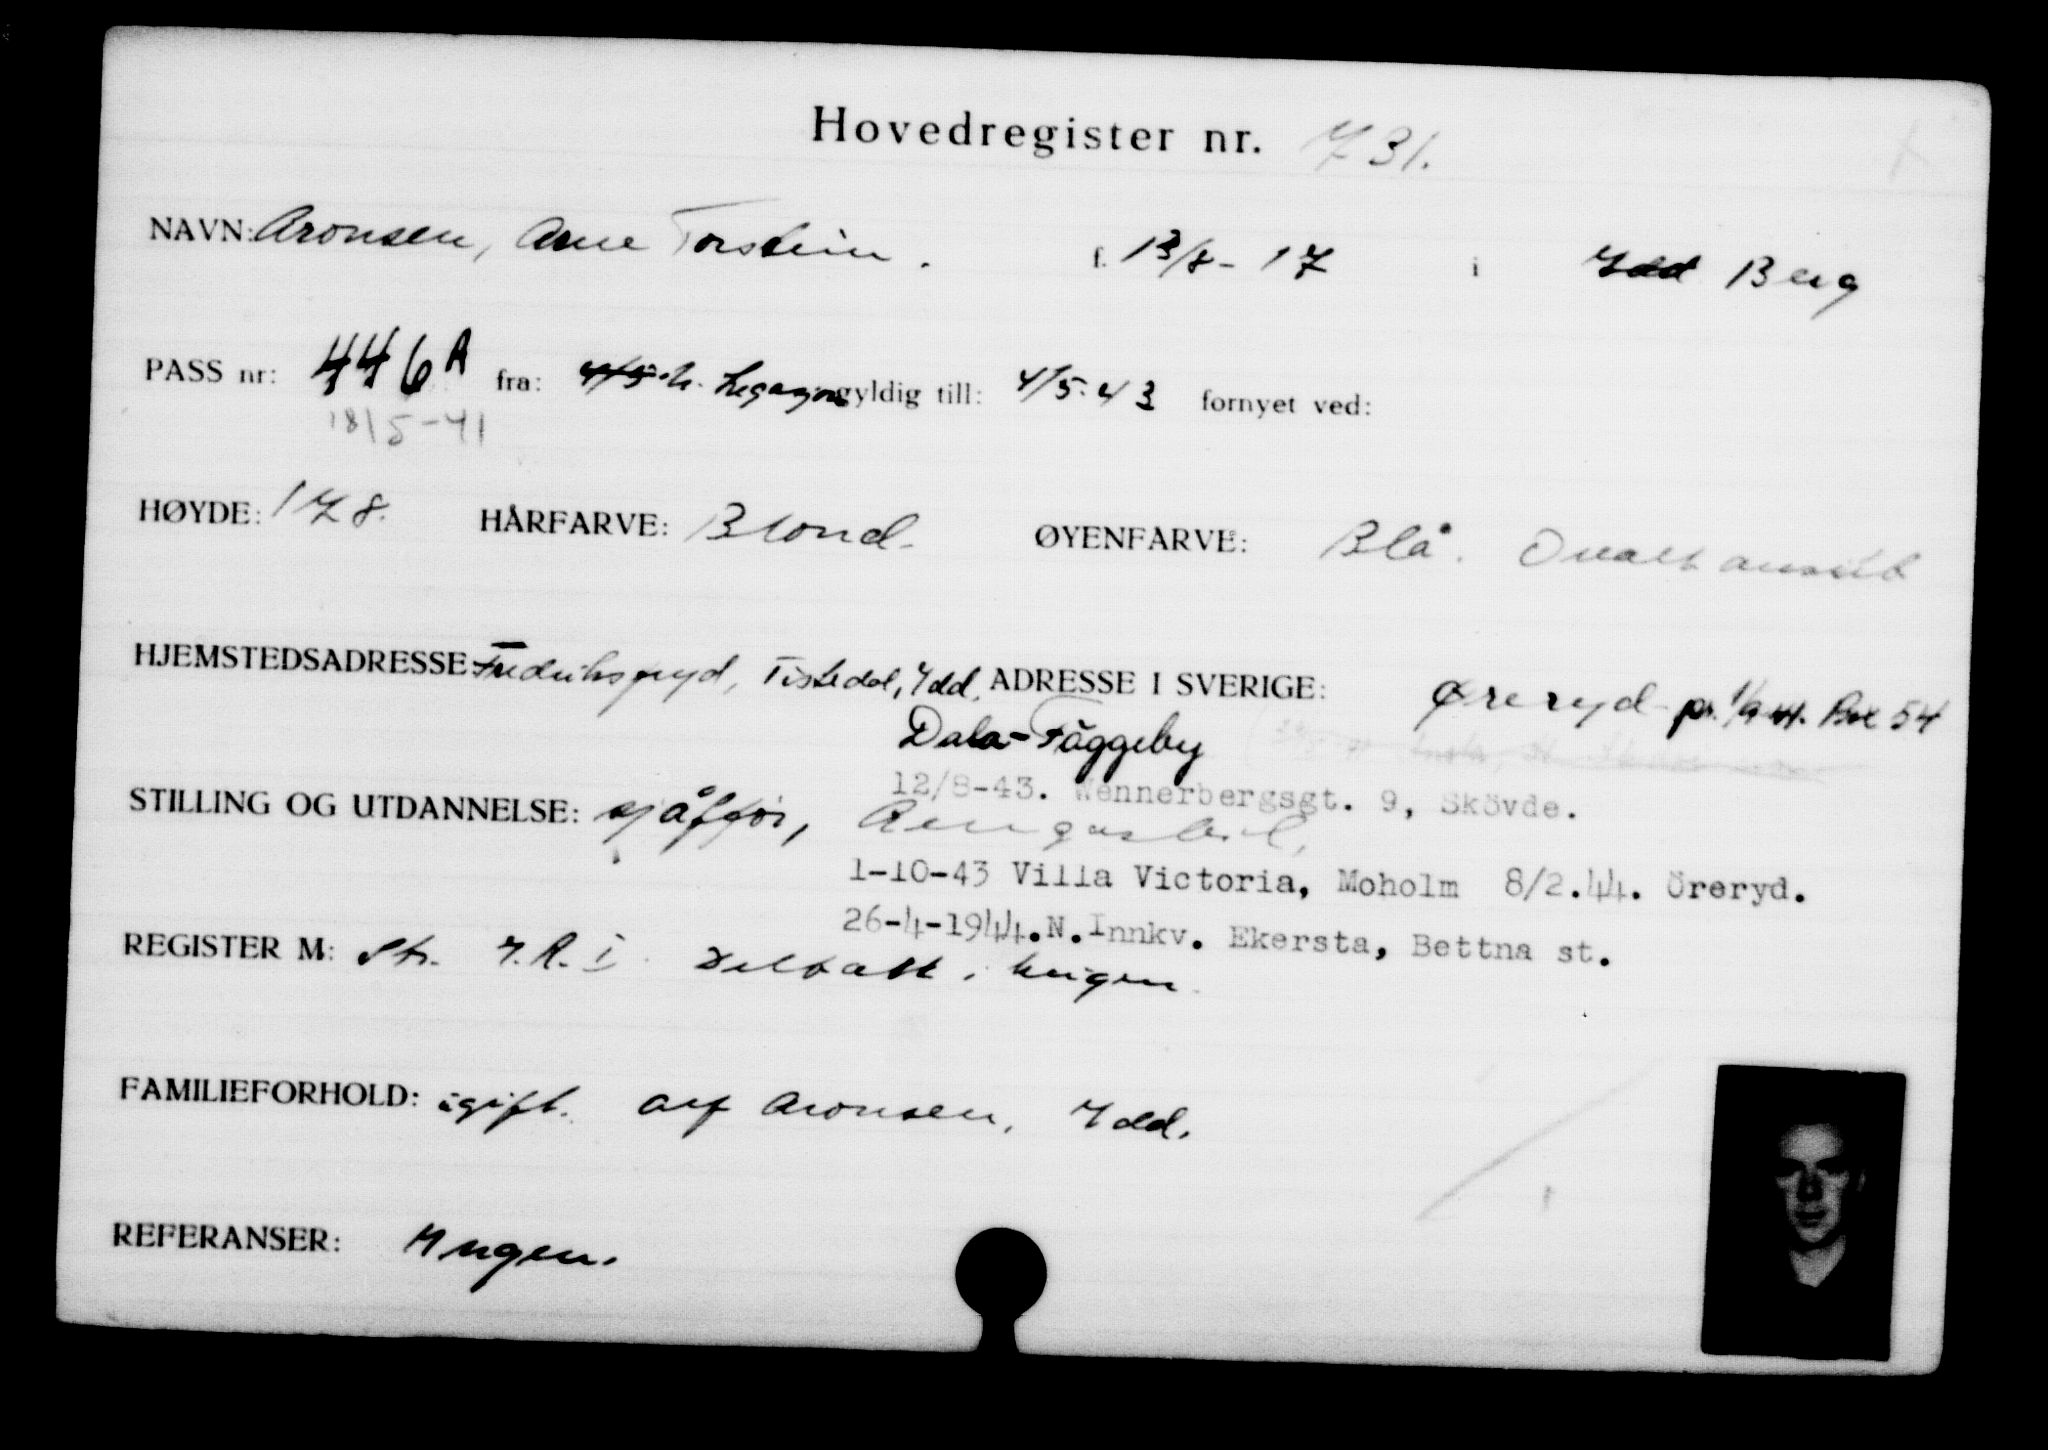 Hovedregister nr. 731.
NAVN: Aronsen, Arne Torstein. f. 13/8-17 i Idd Berg
PASS nr: 446A fra: Legasjon gyldig till: 4/5.43 fornyet ved:
18/5-41
HØYDE: 178. HÅRFARVE: Blond. ØYENFARVE: Blå. Ovalt ansikt
HJEMSTEDSADRESSE: Tistedal, Idd. ADRESSE I SVERIGE: Øreryd pr. Box 54
Dala-Fäggeby
12/8-43. Wennerbergsgt. 9, Skövde.
STILLING OG UTDANNELSE: sjåfför,
1-10-43 Villa Victoria, Moholm 8/2.44. Öreryd.
26-4-1944. N. Innkv. Ekersta, Bettna st.
REGISTER M: I.R. I Deltatt i krigen.
FAMILIEFORHOLD: ugift. Aronsen, Idd.
REFERANSER: Ingen.